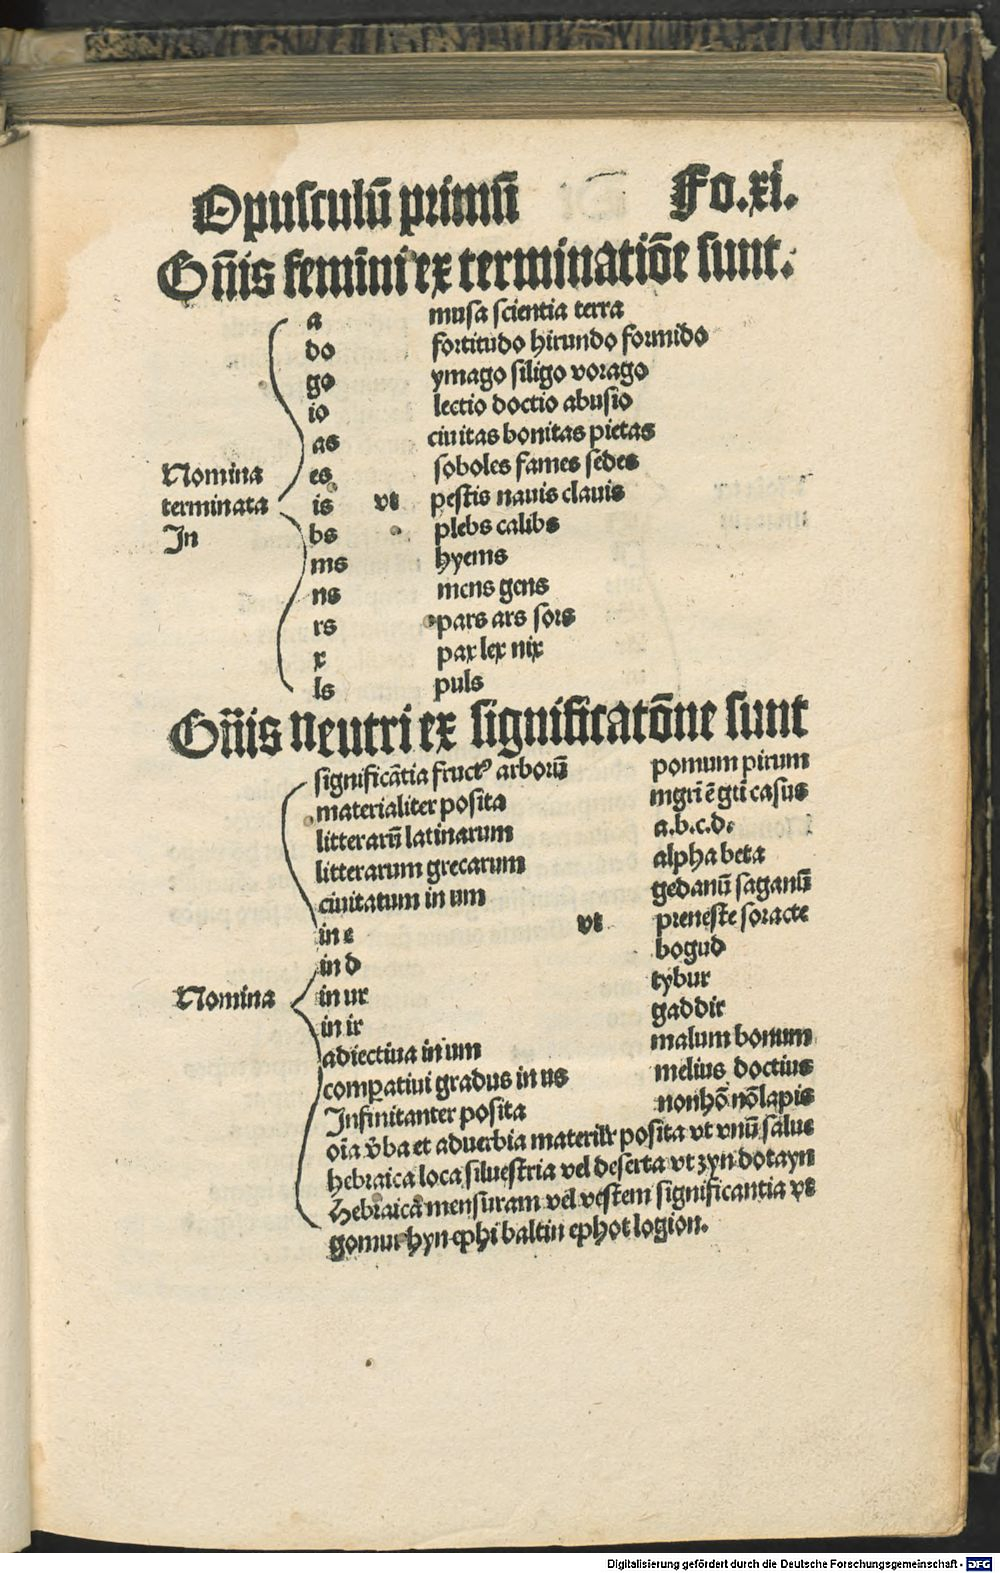 Opusculū primū Fo.xi.
Gn̄is femini ex terminatiōe sunt.
a musa scientia terra
do fortitudo hirundo formido
go ymago siligo vorago
io lectio doctio abusio
as ciuitas bonitas pietas
Nomina es soboles fames sedes
terminata is vt pestis nauis clauis
In bs plebs calibs
ms hyems
ns mens gens
rs pars ars sors
x pax lex nix
ls puls
Gn̄is Neutri ex significatōne sunt
significātia fruct⁹ arborū pomum pirum
materialiter posita mgrī ē gtī casus
litterarū latinarum a.b.c.d.
litterarum grecarum alpha beta
ciuitatum in um gedanū saganū
in e vt preneste soracte
in d bogud
Nomina in ur tybur
in ir gaddir
adiectiua in um malum bonum
comꝑatiui gradus in us melius doctius
Infinitanter posita nonhō nōlapis
oīa v̄ba et aduerbia posita vt vnū salus
hebraica loca siluestria vel deserta vt zyn dotayn
Hebraica mensuram vel vestem significantia vt
gomur hyn ephi baltin ephot logion.
Digitalisierung gefördert durch die Deutsche Forschungsgemeinschaft - DFG